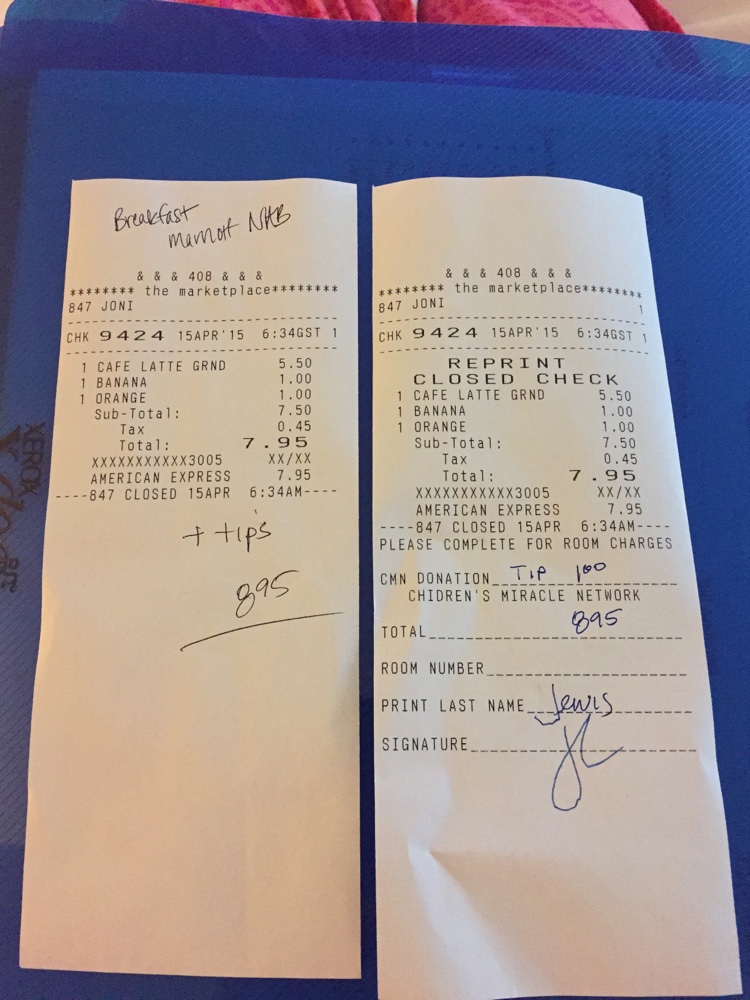 Breakfast
Marriott NAB
& & & 408 & & &
******** the marketplace********
847 JONI
CHK 9424 15APR'15 6:34GST 1
1 CAFE LATTE GRND 5.50
1 BANANA 1.00
1 ORANGE 1.00
Sub-Total: 7.50
Tax 0.45
Total: 7.95
XXXXXXXXXXX3005 XX/XX
AMERICAN EXPRESS 7.95
----847 CLOSED 15APR 6:34AM----
+ tips
895
& & & 408 & & &
******** the marketplace********
847 JONI 1
CHK 9424 15APR'15 6:34GST 1
REPRINT
CLOSED CHECK
1 CAFE LATTE GRND 5.50
1 BANANA 1.00
1 ORANGE 1.00
Sub-Total: 7.50
Tax 0.45
Total: 7.95
XXXXXXXXXXX3005 XX/XX
AMERICAN EXPRESS 7.95
----847 CLOSED 15APR 6:34AM----
PLEASE COMPLETE FOR ROOM CHARGES
CMN DONATION TIP 100
CHIDREN'S MIRACLE NETWORK
TOTAL 895
ROOM NUMBER
PRINT LAST NAME Lewis
SIGNATURE
XEROX